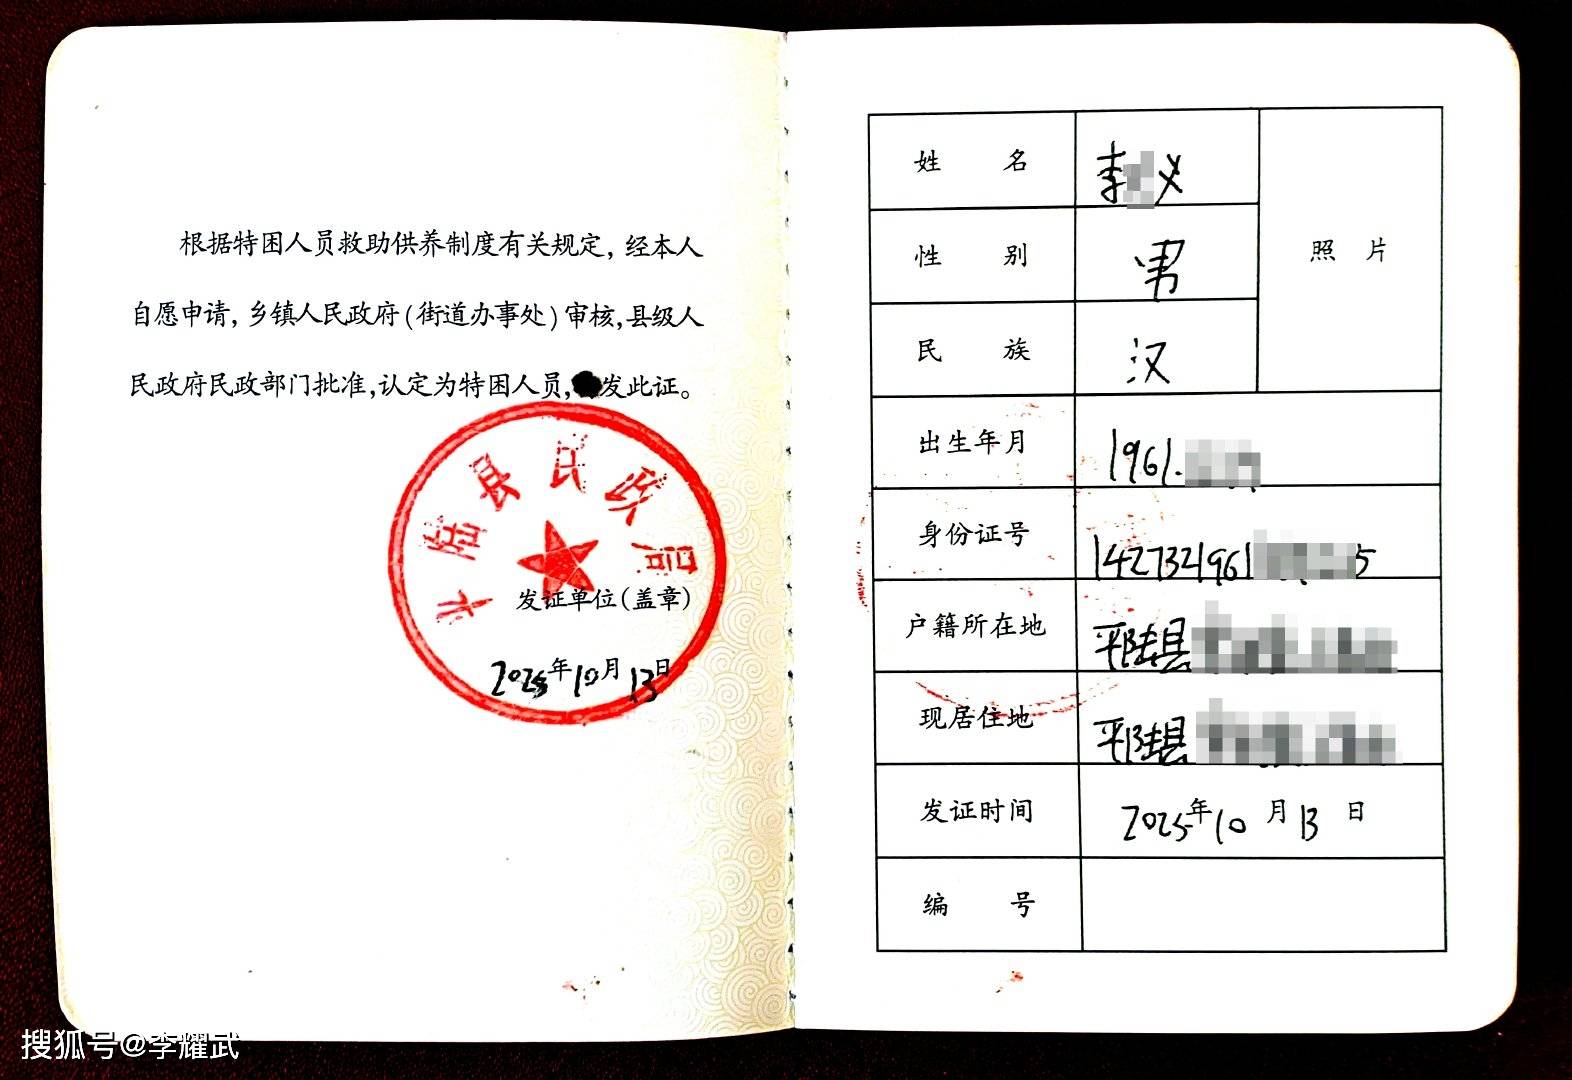 根据特困人员救助供养制度有关规定，经本人
自愿申请，乡镇人民政府(街道办事处)审核，县级人
民政府民政部门批准，认定为特困人员，发此证。
平陆县民政局
发证单位(盖章)
2025年10月13日
姓 名 李 义
照 片
性 别 男
民 族 汉
出生年月 1961.
身份证号 1427321961 5
户籍所在地 平陆县
现居住地 平陆县
发证时间 2025年10月13日
编 号
搜狐号@李耀武